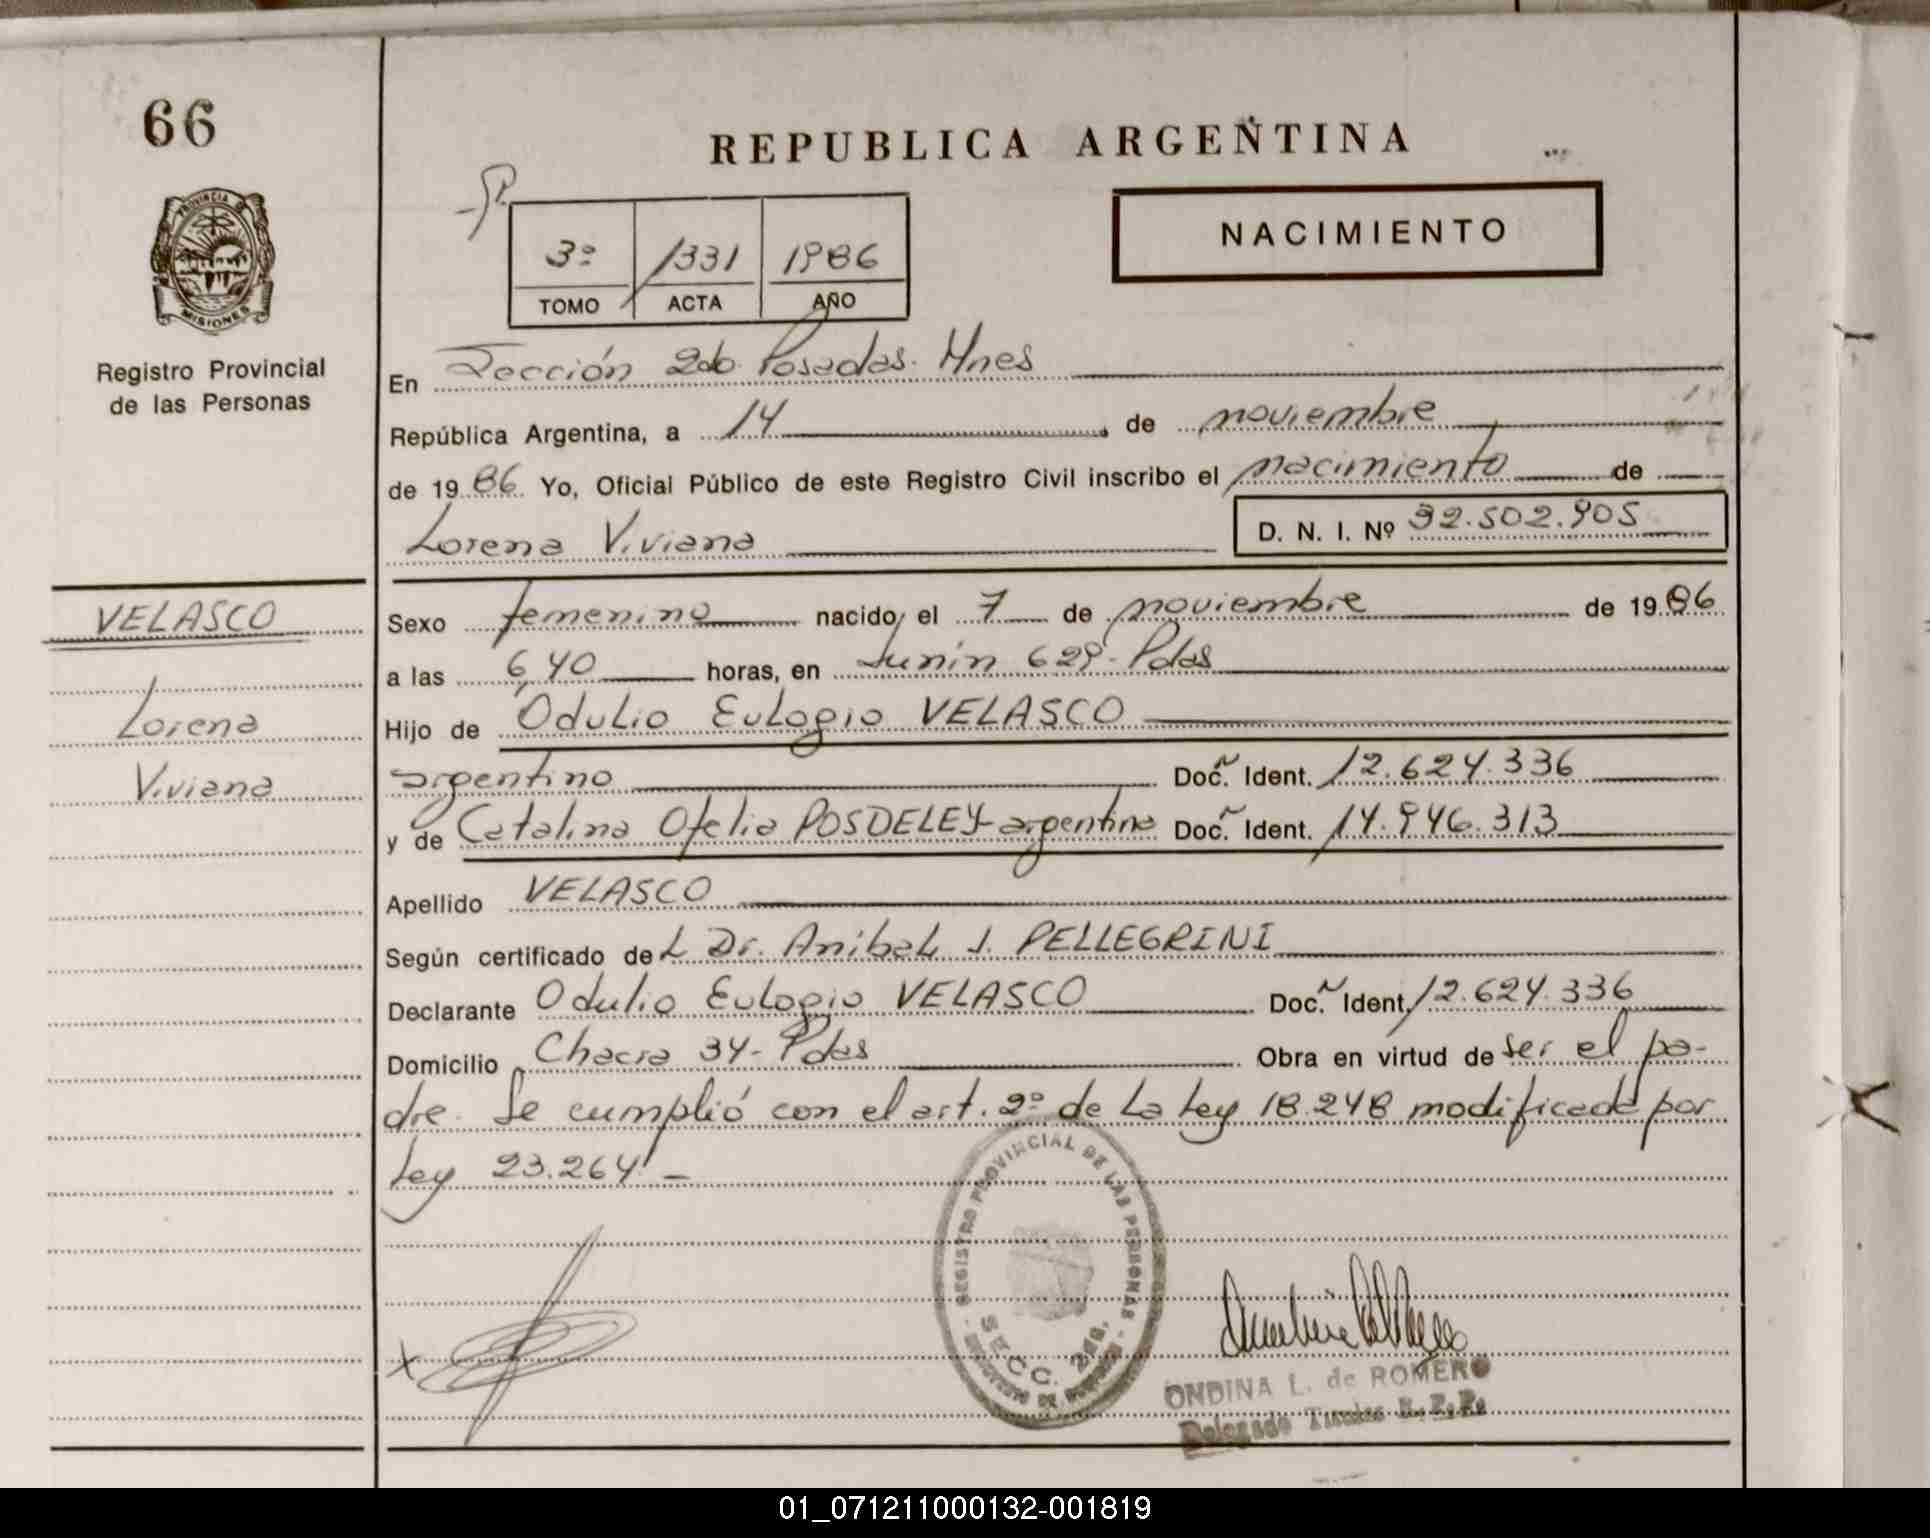 66
REPUBLICA ARGENTINA
PROVINCIA DE
MISIONES
Registro Provincial
de las Personas
3º 1331 1986
TOMO ACTA AÑO
NACIMIENTO
En Sección 2da Posadas. Mnes
República Argentina, a 14 de noviembre
de 1986 Yo, Oficial Público de este Registro Civil inscribo el nacimiento de
Lorena Viviana D. N. I. Nº 32.502.905
VELASCO
Lorena
Viviana
Sexo femenino nacido el 7 de noviembre de 1986
a las 6,40 horas, en Junín 629- Pdas
Hijo de Odulio Eulogio VELASCO
argentino Doc. Ident. 12.624.336
y de Catalina Ofelia POSDELEY argentina Doc. Ident. 14.946.313
Apellido VELASCO
Según certificado del Dr. Anibal J. PELLEGRINI
Declarante Odulio Eulogio VELASCO Doc. Ident. 12.624.336
Domicilio Chacra 34- Pdas Obra en virtud de ser el pa-
dre. Se cumplió con el art. 2º de la Ley 18.248 modificada por
Ley 23.264 -
REGISTRO PROVINCIAL DE LAS PERSONAS
SECC. 2da.
ONDINA L. de ROMERO
Delegado Titular R. P. P.
01_071211000132-001819